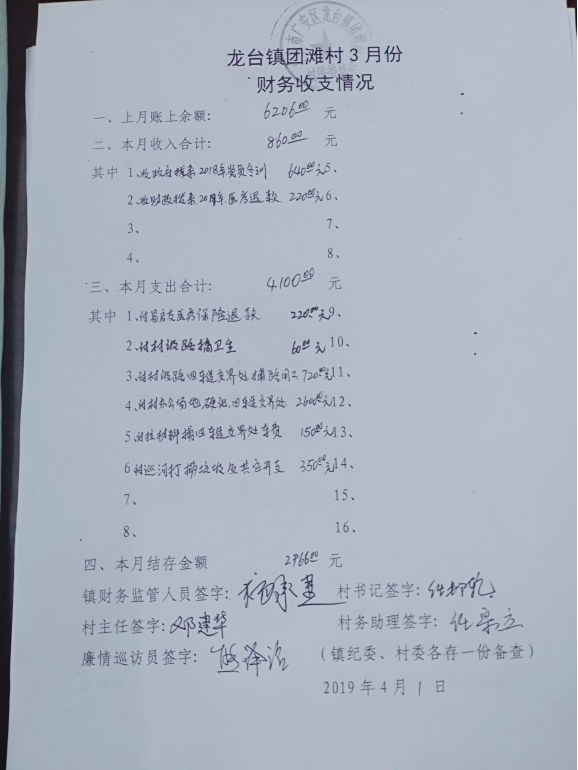 市广安区龙台镇团滩村
龙台镇团滩村3月份
财务收支情况
一、上月账上余额: 6206.00 元
二、本月收入合计: 860.00 元
其中 1、收政府拨来2018年党员冬训 640.00元5、
2、收财政拨来2019年医疗退款 220.00元6、
3、 7、
4、 8、
三、本月支出合计: 4100.00 元
其中 1、付易启友医疗保险退款 220.00元9、
2、付村级路搞卫生 60.00元10、
3、付村级路四年道交界处铺路用工720.00元11、
4、付村办公场地硬化,四年道交界处 2600.00元12、
5、付拉材料搞四年道交界处车费 150.00元13、
6、付巡河打捞垃圾及其它开支 350.00元14、
7、 15、
8、 16、
四、本月结存金额 2966.00 元
镇财务监管人员签字: 村书记签字:
村主任签字:邓建华 村务助理签字:
廉情巡访员签字: (镇纪委、村委各存一份备查)
2019年4月1日